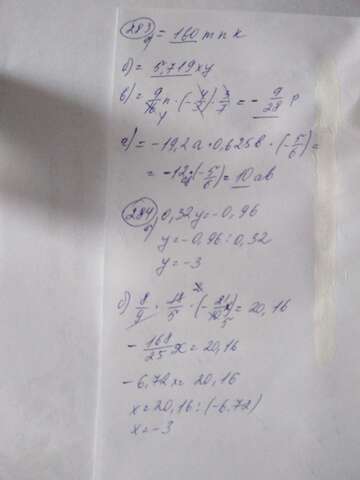 283
а) = 160 mnk
б) = 5,719xy
в) = 9/16 p · (-4/2) · 3/7 = - 9/28 p
г) = -19,2a · 0,625b · (-5/6) =
= -12 · (-5/6) = 10ab
284
а) 0,32y = -0,96
y = -0,96 : 0,32
y = -3
б) 8/9 · 18/5 · (- 21/10 x) = 20,16
- 168/25 x = 20,16
-6,72x = 20,16
x = 20,16 : (-6,72)
x = -3